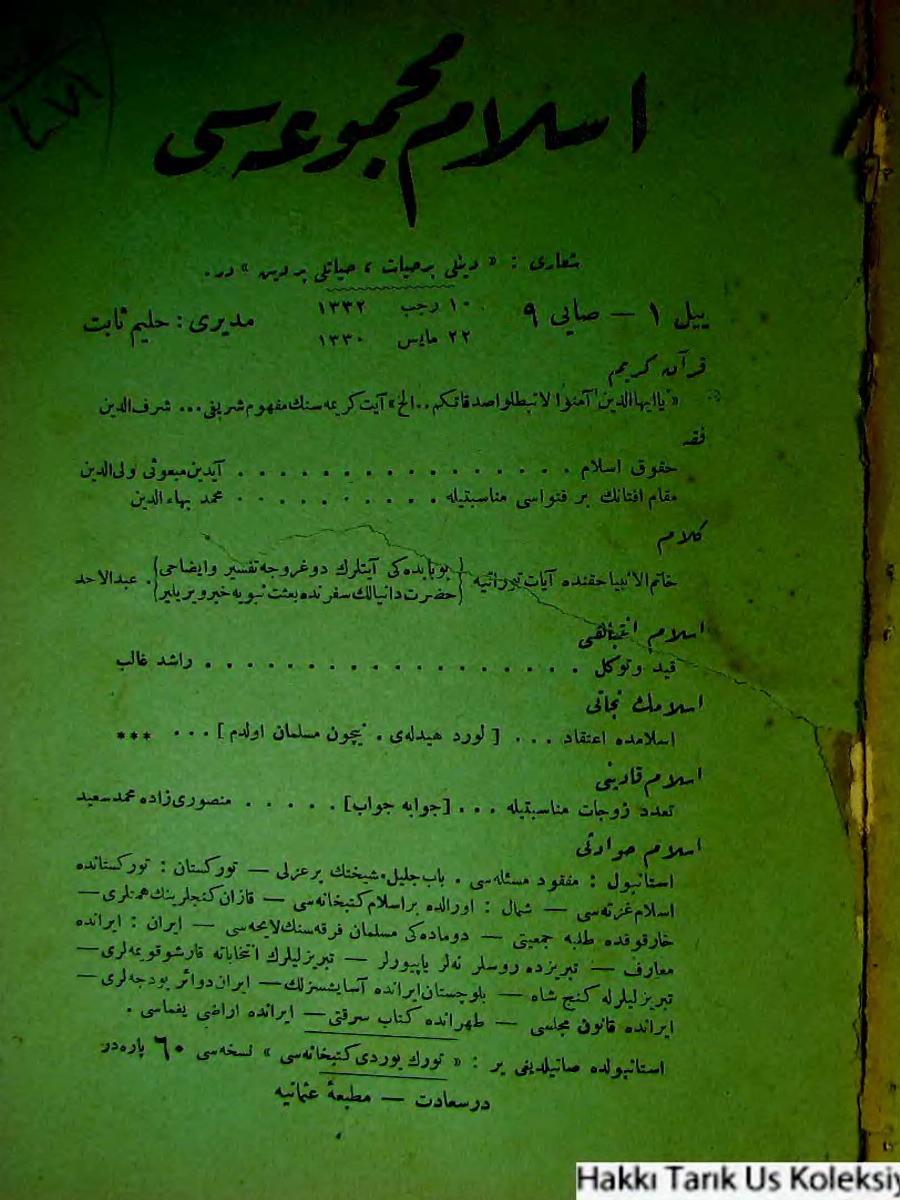 اسلام مجموعه سی
شعاری : « دینلی بر حیات ، حیاتلی بر دین » در .
ییل ۱ — صایی ۹
۱۰ رجب ۱۳۳۲
۲۲ مایس ۱۳۳۰
مدیری : حلیم ثابت
قرآن کریم
« یا ایها الذین آمنوا لاتبطلوا صدقاتکم .. الخ » آیت کریمه سنك مفهوم شریفی ... شرف الدین
فقه
حقوق اسلام . . . . . . . . . . . . . . . آیدین مبعوثی ولی الدین
مقام افتانك بر فتواسی مناسبتیله . . . . . . . . . محمد بهاء الدین
کلام
خاتم الانبیا حقنده آیات توراتیه { بو بابده کی آیتلرك دوغروجه تفسیر وایضاحی } . عبدالاحد
{ حضرت دانیالك سفرنده بعثت نبویه خبر ویریلیر }
اسلام
قید و توکل . . . . . . . . . . . . . . . . . راشد غالب
اسلامك نجاتی
اسلامده اعتقاد . . . [ لورد هیدله ی . نیچون مسلمان اولدم ] . . . ***
اسلام قادینی
تعدد زوجات مناسبتیله . . . [ جوابه جواب ] . . . . . منصوری زاده محمد سعید
اسلام حوادثی
استانبول : مفقود مسئله سی . باب جلیل مشیختك بر عزلی — تورکستان : تورکستانده
اسلام غزته سی — شمال : اورالده بر اسلام کتبخانه سی — قازان کنجلرینك همتلری —
خارقوفده طلبه جمعیتی — دوماده کی مسلمان فرقه سنك لایحه سی — ایران : ایرانده
معارف — تبریزده روسلر نه لر یاپیورلر — تبریزلیلرك انتخاباته قارشو قویمه لری —
تبریزلیلرله کنج شاه — بلوچستان ایرانده آسایشسزلك — ایران دوائر بودجه لری —
ایرانده قانون مجلسی — طهرانده کتاب سرقتی — ایرانده اراضی یغماسی .
استانبولده صاتیلدیغی یر : « تورك یوردی کتبخانه سی » نسخه سی ٦۰ پاره در
درسعادت — مطبعۀ عثمانیه
Hakkı Tarık Us Koleksiy